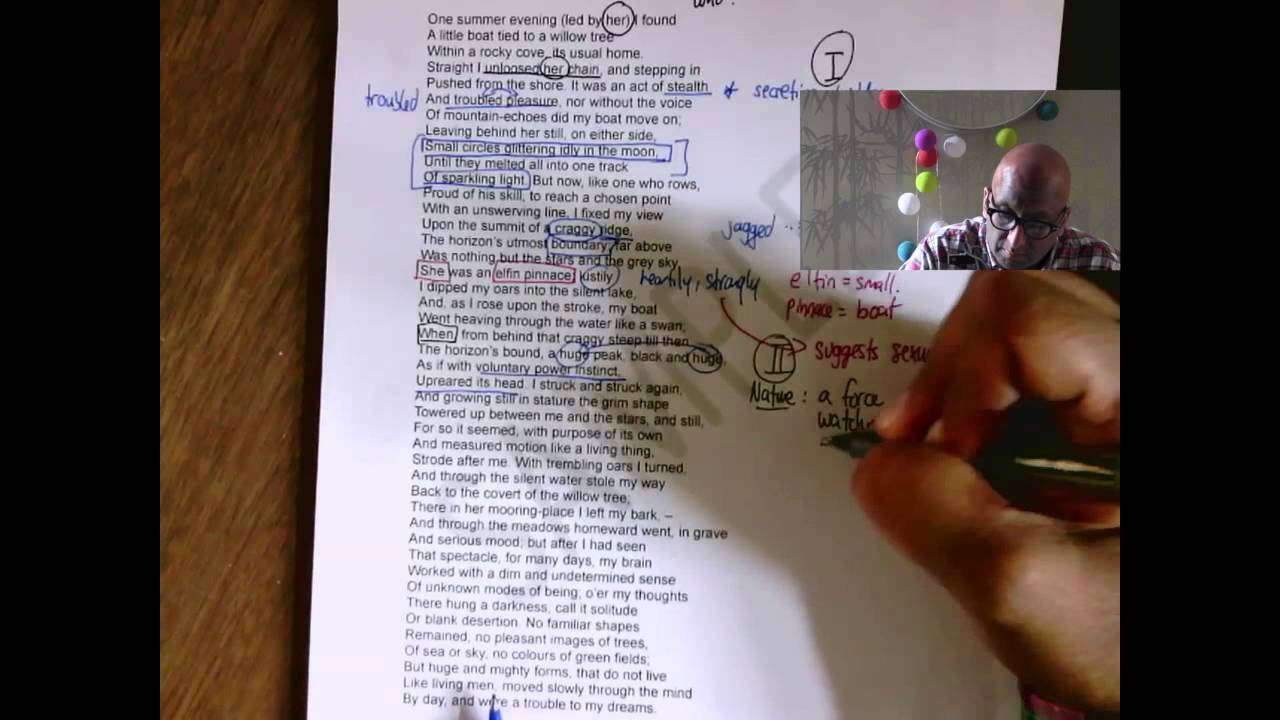 who?
One summer evening (led by her) I found
A little boat tied to a willow tree
Within a rocky cove, its usual home.
Straight I unloosed her chain, and stepping in
Pushed from the shore. It was an act of stealth
And troubled pleasure, nor without the voice
Of mountain-echoes did my boat move on;
Leaving behind her still, on either side,
Small circles glittering idly in the moon,
Until they melted all into one track
Of sparkling light. But now, like one who rows,
Proud of his skill, to reach a chosen point
With an unswerving line, I fixed my view
Upon the summit of a craggy ridge,
The horizon's utmost boundary; far above
Was nothing but the stars and the grey sky.
She was an elfin pinnace; lustily
I dipped my oars into the silent lake,
And, as I rose upon the stroke, my boat
Went heaving through the water like a swan;
When, from behind that craggy steep till then
The horizon's bound, a huge peak, black and huge,
As if with voluntary power instinct,
Upreared its head. I struck and struck again,
And growing still in stature the grim shape
Towered up between me and the stars, and still,
For so it seemed, with purpose of its own
And measured motion like a living thing,
Strode after me. With trembling oars I turned,
And through the silent water stole my way
Back to the covert of the willow tree;
There in her mooring-place I left my bark, –
And through the meadows homeward went, in grave
And serious mood; but after I had seen
That spectacle, for many days, my brain
Worked with a dim and undetermined sense
Of unknown modes of being; o'er my thoughts
There hung a darkness, call it solitude
Or blank desertion. No familiar shapes
Remained, no pleasant images of trees,
Of sea or sky, no colours of green fields;
But huge and mighty forms, that do not live
Like living men, moved slowly through the mind
By day, and were a trouble to my dreams.
troubled
I
jagged
heartily, strongly
elfin = small.
pinnace = boat
II
suggests
Nature: a force